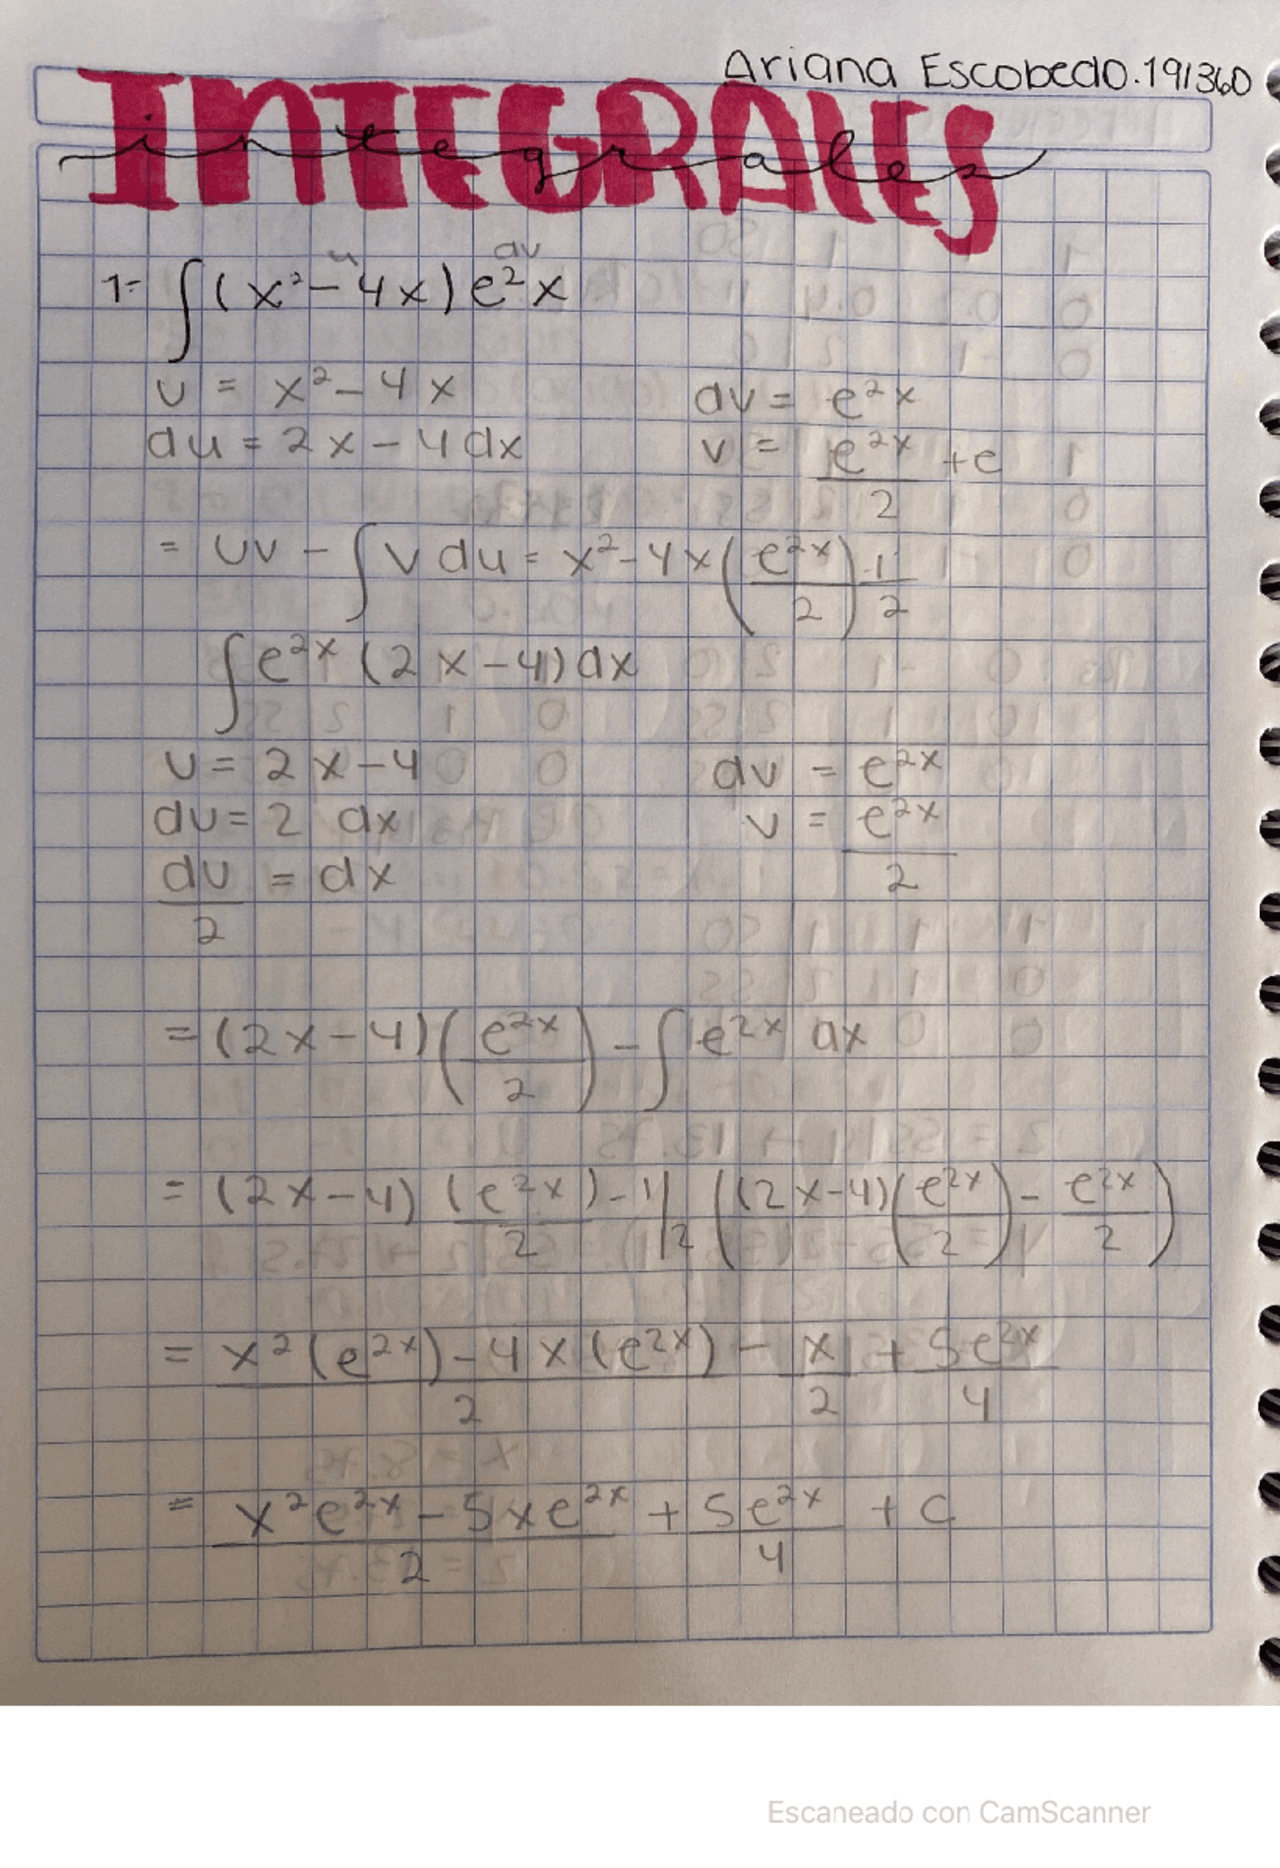 Ariana Escobedo.191360
INTEGRALES
integrales
u dv
1- ∫(x²-4x)e²x
u = x²-4x dv = e²x
du = 2x-4dx v = e²x/2 +c
= uv - ∫v du = x²-4x(e²x/2) 1/2
∫e²x (2x-4)dx
u = 2x-4 dv = e²x
du = 2 dx v = e²x/2
du/2 = dx
= (2x-4)(e²x/2) - ∫e²x dx
= (2x-4) (e²x/2) - 1/2 ((2x-4)(e²x/2) - e²x/2)
= x²(e²x)-4x(e²x)/2 - x/2 + 5e²x/4
= x²e²x - 5xe²x/2 + 5e²x/4 + c
Escaneado con CamScanner